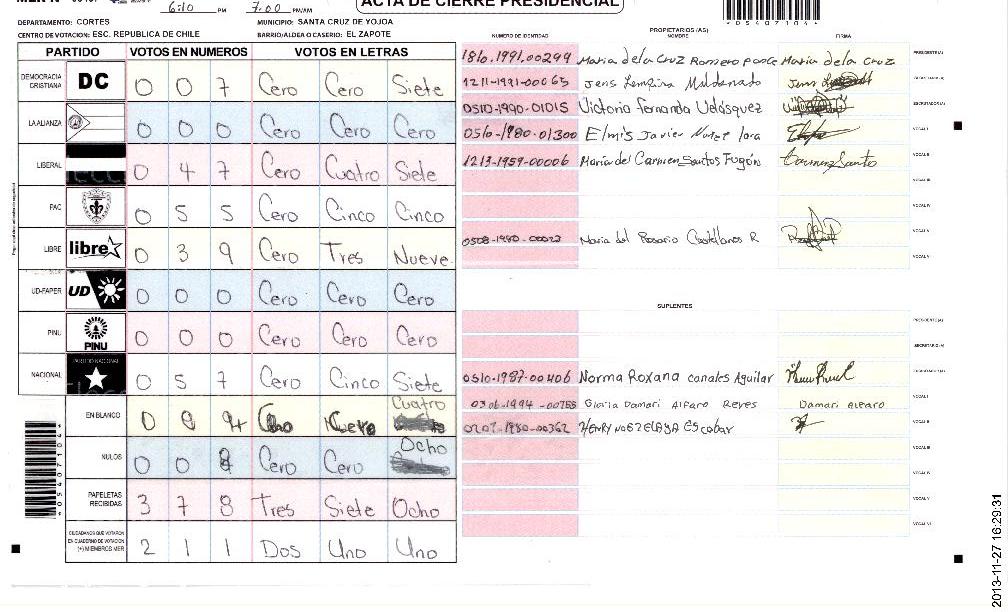 6:10 PM 7:00 PM/AM
ACTA DE CIERRE PRESIDENCIAL
DEPARTAMENTO: CORTES MUNICIPIO: SANTA CRUZ DE YOJOA
CENTRO DE VOTACION: ESC. REPUBLICA DE CHILE BARRIO/ALDEA O CASERIO: EL ZAPOTE
05407104
PARTIDO VOTOS EN NUMEROS VOTOS EN LETRAS
DEMOCRACIA CRISTIANA DC 0 0 7 Cero Cero Siete
LA ALIANZA 0 0 0 Cero Cero Cero
LIBERAL 0 4 7 Cero Cuatro Siete
PAC 0 5 5 Cero Cinco Cinco
LIBRE libre 0 3 9 Cero Tres Nueve
UD-FAPER UD 0 0 0 Cero Cero Cero
PINU PINU 0 0 0 Cero Cero Cero
NACIONAL PARTIDO NACIONAL 0 5 7 Cero Cinco Siete
EN BLANCO 0 Cuatro
NULOS 0 0 8 Cero Cero Ocho
PAPELETAS RECIBIDAS 3 7 8 Tres Siete Ocho
CIUDADANOS QUE VOTARON EN CUADERNO DE VOTACION (+) MIEMBROS MER 2 1 1 Dos Uno Uno
05407104
NUMERO DE IDENTIDAD PROPIETARIOS (AS) NOMBRE FIRMA
1816.1991.00299 Maria dela Cruz Romero ponce Maria dela Cruz PRESIDENTE(A)
1211-1991-00065 Jens Maldonado Jens SECRETARIO(A)
0510-1990-01015 Victoria Fernanda Velásquez ESCRUTADOR(A)
0510-1980-01300 Elmis Javier Nuñez lara VOCAL I
1213-1959-00006 Maria del Carmen Santos Fugón Carmen Santo VOCAL II
VOCAL III
VOCAL IV
0508-1980-00022 Maria del Rosario Castellanos R VOCAL V
VOCAL VI
SUPLENTES
PRESIDENTE(A)
SECRETARIO(A)
0510-1987-00406 Norma Roxana canales Aguilar ESCRUTADOR(A)
0306-1994-00755 Gloria Damari Alfaro Reyes Damari Alfaro VOCAL I
0207-1980-00362 HENRY NOE ZELAYA Escobar VOCAL II
VOCAL III
VOCAL IV
VOCAL V
VOCAL VI
2013-11-27 16:29:31